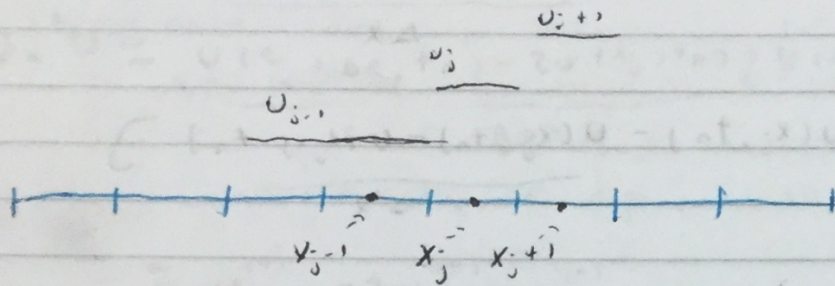 U_{j+1}
U_j
U_{j-1}
x_{j-1} x_j x_{j+1}